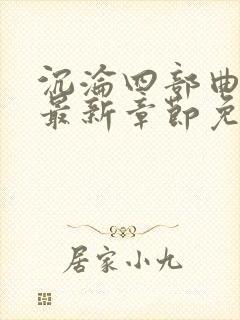 沉淪四部曲
最新章節免
居家小九